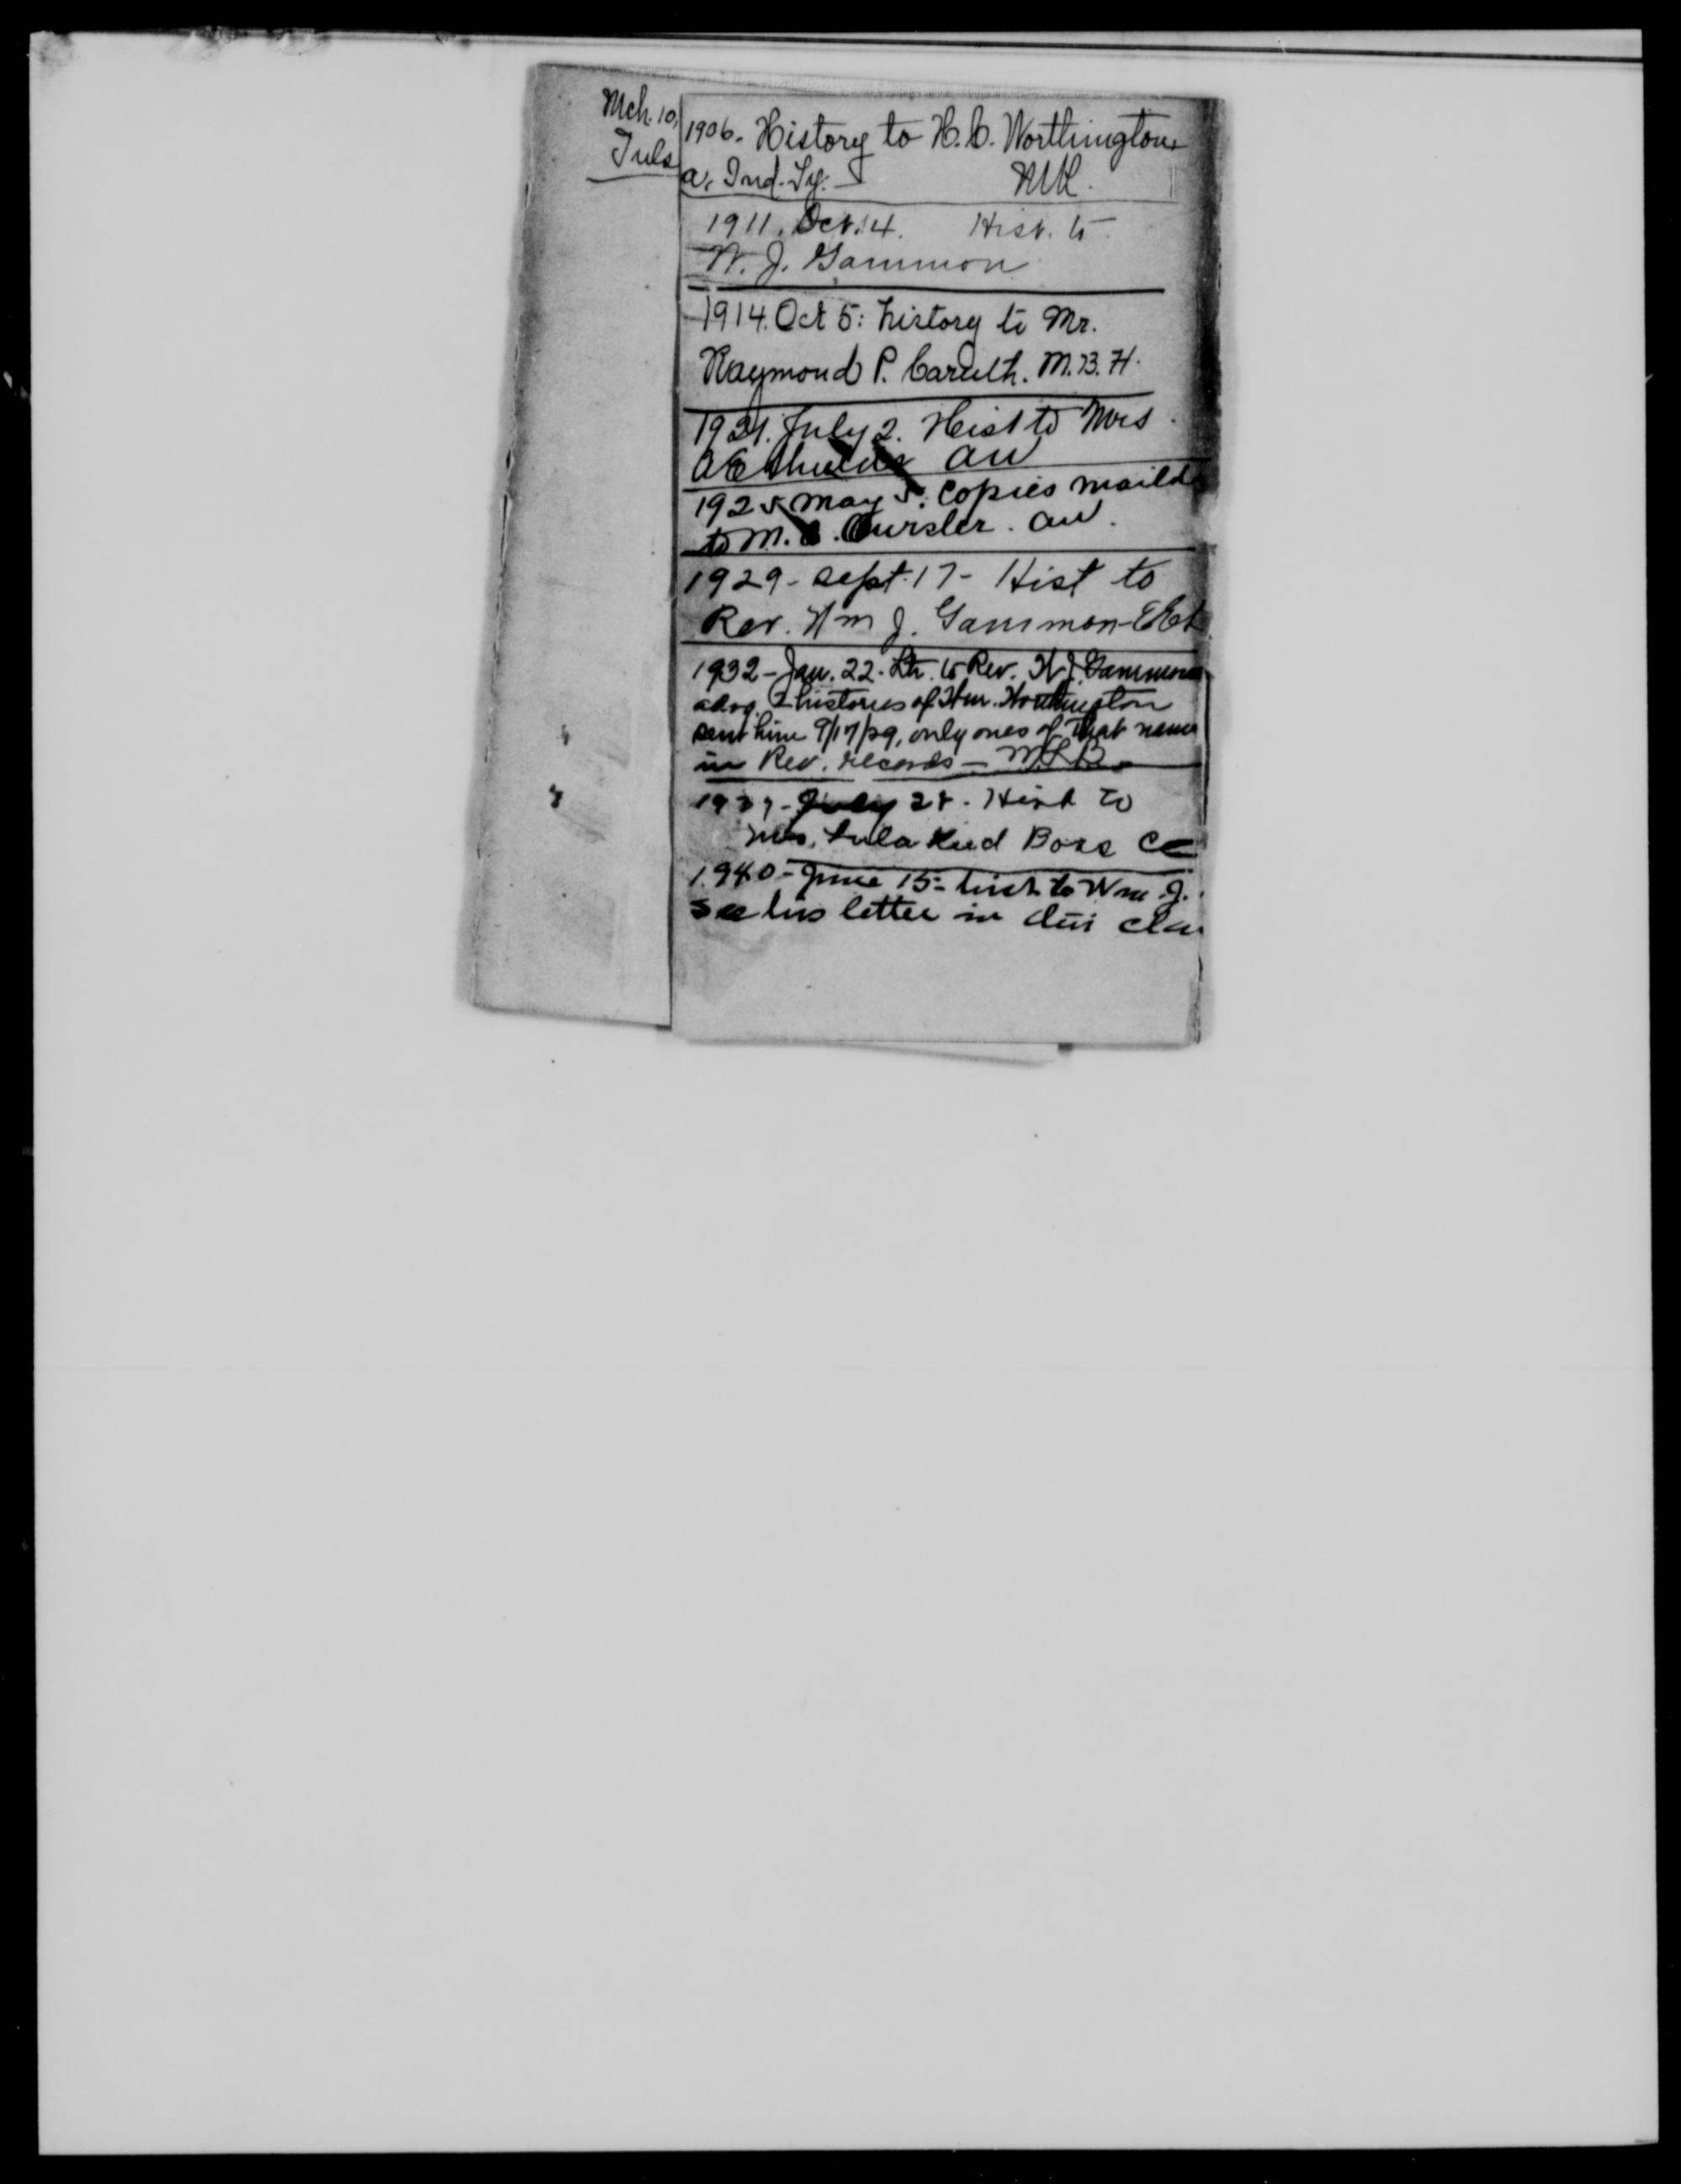 Mch. 10, 1906. History to H. C. Worthington,
Tulsa, Ind. Ty. MR.
1911. Oct. 14. Hist. to
W. J. Gammon
1914. Oct 5: history to Mr.
Raymond P. Caruth. M.B.H.
1921. July 2. Hist to Mrs
AE AW
1925 May 5. Copies maild
to M. Oursler. AW.
1929 - Sept. 17 - Hist to
Rev. Wm J. Gammon -
1932 - Jan. 22. Ltr. to Rev. W J. Gammon
advg. 2 histories of Wm. Worthington
sent him 9/17/29, only ones of that name
in Rev. records - MLB
1937 - July 28. Hist to
Mrs. Lula Boss CC
1940 - June 15 - hist to Wm J.
see his letter in